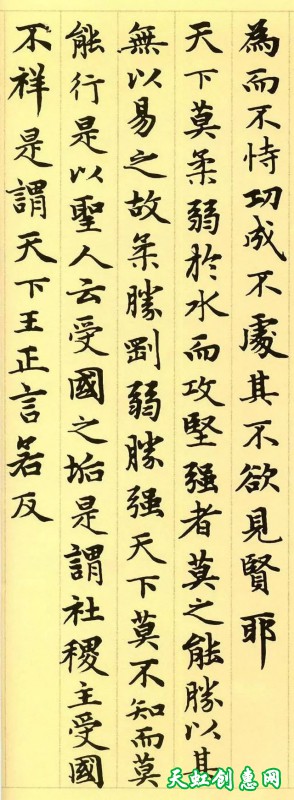 為而不恃功成不處其不欲見賢耶
天下莫柔弱於水而攻堅强者莫之能勝以其
無以易之故柔勝剛弱勝强天下莫不知而莫
能行是以聖人云受國之垢是謂社稷主受國
不祥是謂天下王正言若反
天虹创意网